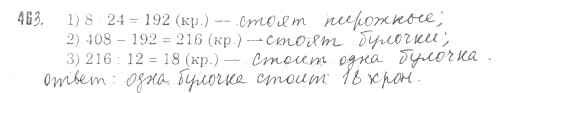 463. 1) 8 · 24 = 192 (кр.) — стоят пирожные;
2) 408 – 192 = 216 (кр.) — стоят булочки;
3) 216 : 12 = 18 (кр.) — стоит одна булочка.
Ответ: одна булочка стоит 18 крон.